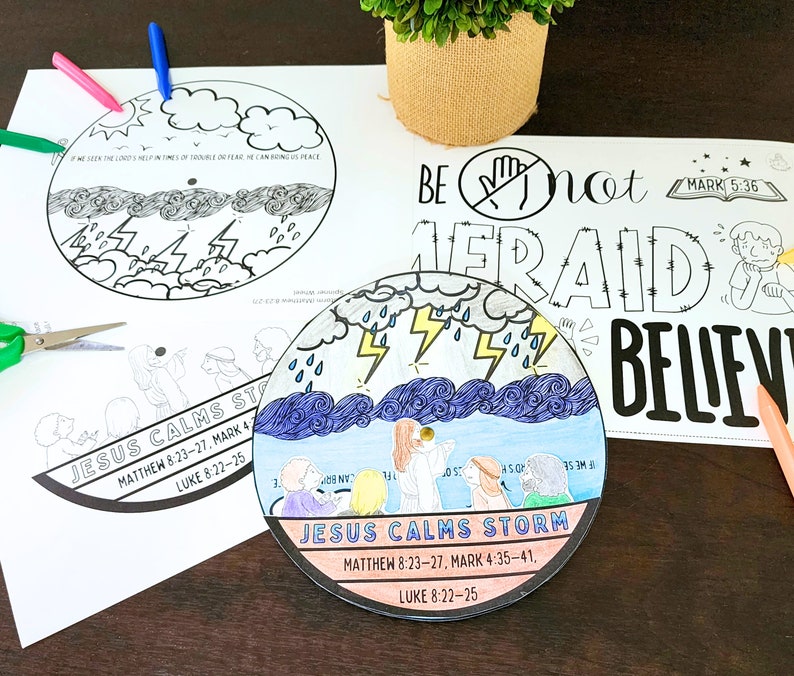 IF WE SEEK THE LORD'S HELP IN TIMES OF TROUBLE OR FEAR, HE CAN BRING US PEACE.
Storm (Matthew 8:23-27)
Spinner Wheel
JESUS CALMS STO
MATTHEW 8:23–27, MARK 4
LUKE 8:22–25
BE not
MARK 5:36
AFRAID
BELIEV
IF WE SE
RD'S H
ES O
R FE
CAN BRIN
CE.
JESUS CALMS STORM
MATTHEW 8:23–27, MARK 4:35–41,
LUKE 8:22–25